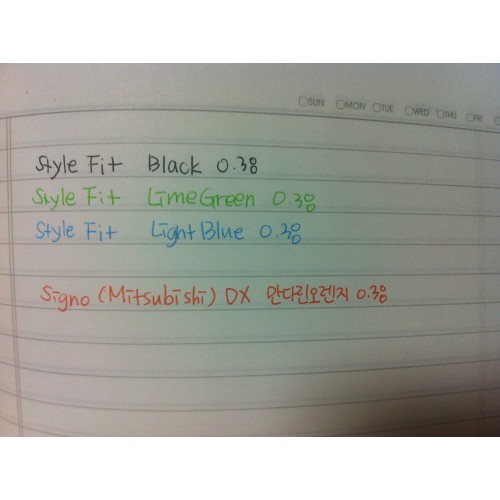 SUN MON TUE WED THU FRI
Style Fit Black 0.38
Style Fit LimeGreen 0.38
Style Fit LightBlue 0.38
Signo (Mitsubishi) DX 만다린오렌지 0.38